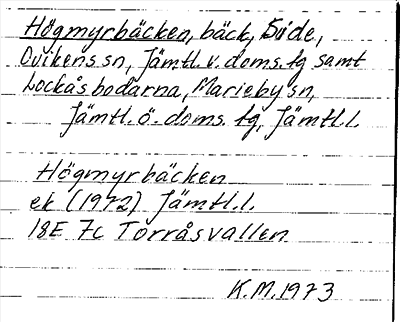 Högmyrbäcken, bäck, Side,
Ovikens sn, Jämtl. v. doms. tg samt
Lockåsbodarna, Marieby sn,
Jämtl. ö. doms. tg, Jämtl. l.
Högmyrbäcken
ek (1972) Jämtl. l.
18E 7c Torråsvallen
K.M. 1973